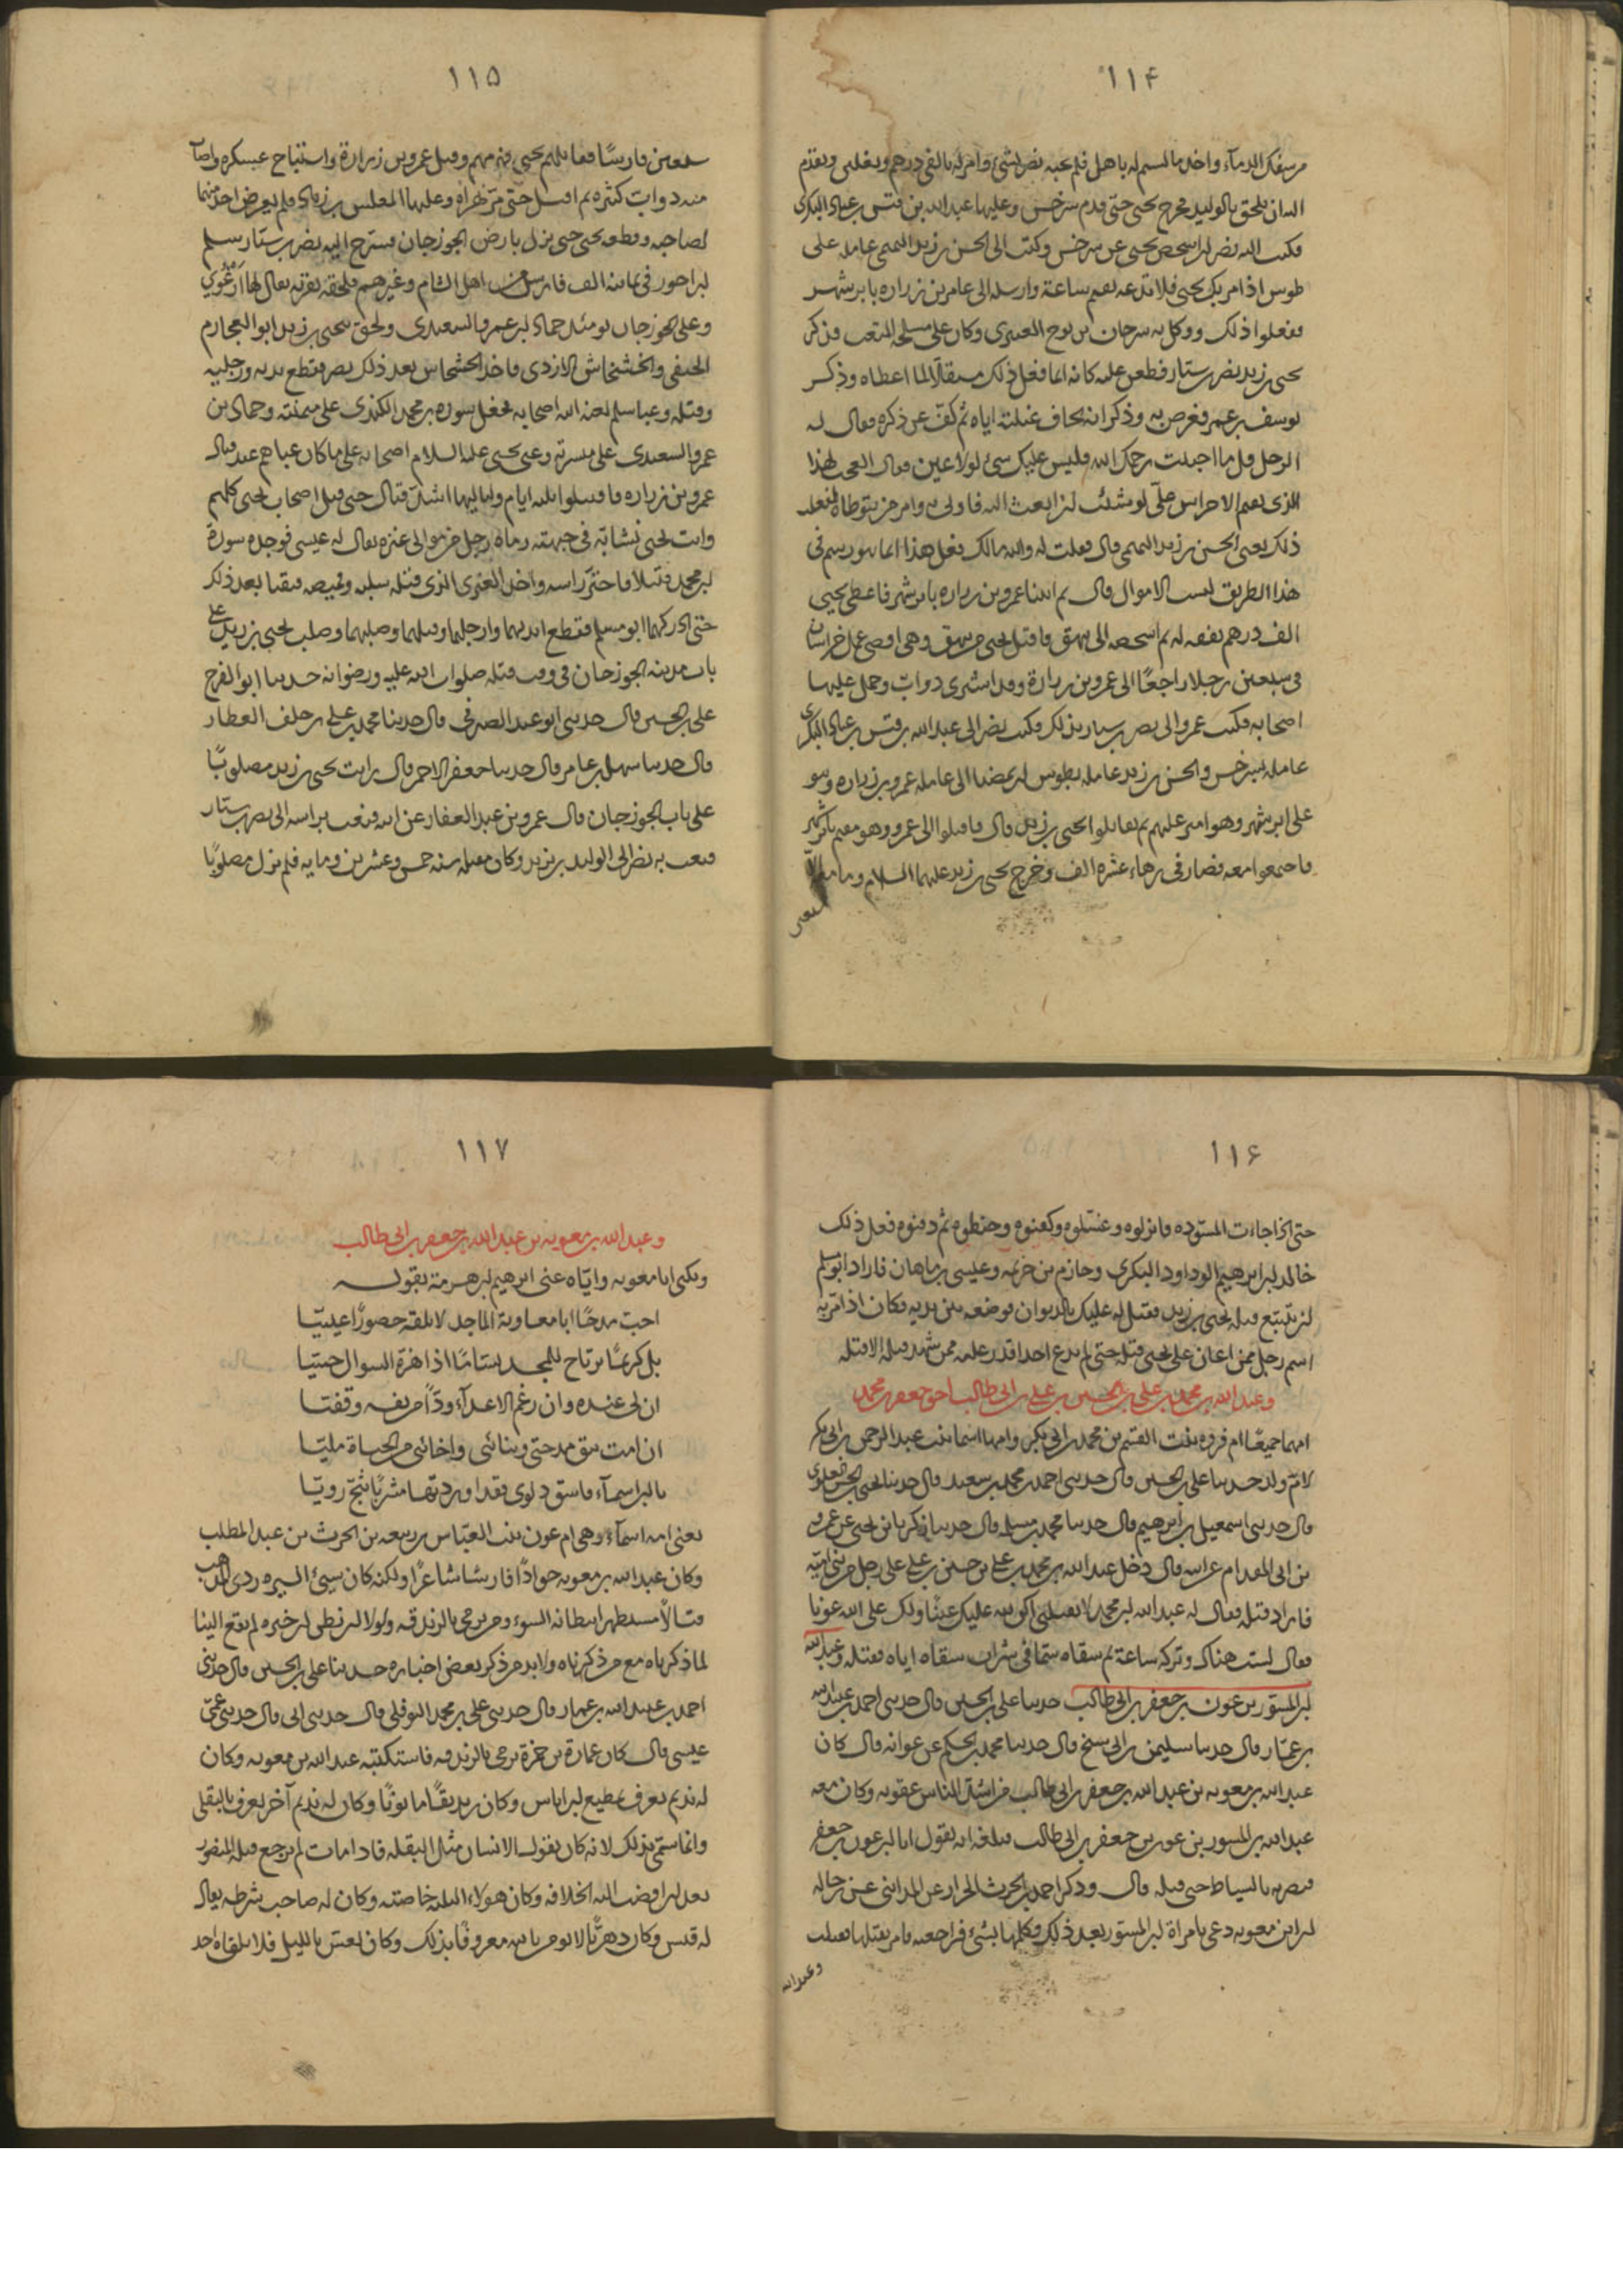 ١١۴
من سفك الدماء واخذ ما ليس له باهل فلم يجبه نصر بشئ وامر له بالفي درهم ونعلين وتقدم
اليه ان يلحق بالوليد فخرج يحيى حتى قدم سرخس وعليها عبد الله بن قيس بن عباد البكري
فكتب اليه نصر ان اشخص يحيى عن سرخس وكتب الى الحسن بن زيد التميمي عامله على
طوس اذا مر بك يحيى فلا تدعه يقيم ساعة وارسله الى عامر بن زراره بابرشهر
ففعلوا ذلك ووكل به سرحان بن نوح العنبري وكان على مسلحة المتعب فذكر
يحيى بن زيد نصر بن سيار فطعن عليه كانه انما فعل ذلك مستقلا لما اعطاه وذكر
يوسف بن عمر فعرض به وذكر انه يخاف غيلته اياه ثم كف عن ذكره فقال له
الرجل قل ما احببت رحمك الله فليس عليك شئ لولا عين فقال العجب لهذا
الذي يقيم الاحراس علي لو شئت ان ابعث اليه فاوتى به وامر من يتوطاه لفعلت
ذلك يعني الحسن بن زيد التميمي قال فقلت له والله ما لك فعل هذا انما هو رسم في
هذا الطريق لسبب الاموال قال ثم اتينا عمرو بن زراره بابرشهر فاعطى يحيى
الف درهم نفقه له ثم اشخصه الى بيهق فاقبل يحيى من بيهق وهي اقصى عمل خراسان
في سبعين رجلا راجعا الى عمرو بن زرارة وقد اشترى دواب وحمل عليها
اصحابه فكتب عمرو الى نصر بن سيار بذلك فكتب نصر الى عبد الله بن قيس بن عباد البكري
عامله بسرخس والحسن بن زيد عامله بطوس ان يمضيا الى عامله عمرو بن زراره وهو
على ابرشهر وهو امير عليهم ثم يقاتلوا يحيى بن زيد قال فاقبلوا الى عمرو وهو مقيم بابرشهر
فاجتمعوا معه فصار في زهاء عشره الف وخرج يحيى بن زيد عليهما السلام وما معه الا
سبعين
١١۵
سبعين فارسًا فقاتلهم يحيى فهزمهم وقتل عمرو بن زرارة واستباح عسكره واصاب
منه دواب كثره ثم اقبل حتى مر بهراة وعليها المغلس بن زياد فلم يعرض احد منهما
لصاحبه وقطعه يحيى حتى نزل بارض الجوزجان فسرح اليه نصر بن سيار سلم
بن احوز في ثمانيه الف فارس من اهل الشام وغيرهم فلحقه بقرية يقال لها ارغوي
وعلى الجوزجان يومئذ حماد بن عمرو السعيدي ولحق بيحيى بن زيد ابو العجارم
الحنفي والخشخاش الازدي فاخذ الخشخاش بعد ذلك نصر فقطع يديه ورجليه
وقتله وعبا سلم لعنه الله اصحابه فجعل سوره بن محمد الكندي على ميمنته وحماد بن
عمرو السعيدي على ميسرته وعبى يحيى عليه السلام اصحابه على ما كان عباهم عند قتال
عمرو بن زراره فاقتتلوا ثلثه ايام ولياليها اشد قتال حتى قتل اصحاب يحيى كلهم
واتت يحيى نشابة في جبهته رماه رجل من موالى عنزه يقال له عيسى فوجده سورة
بن محمد قتيلا فاحتز راسه واخذ العنزي الذي قتله سلبه وقميصه فبقيا بعد ذلك
حتى ادركهما ابو مسلم فقطع ايديهما وارجلهما وقتلهما وصلبهما وصلب يحيى بن زيد على
باب مدينه الجوزجان في وقت قتله صلوات الله عليه ورضوانه حدثنا ابو الفرج
علي بن الحسين قال حدثني ابو عبد الصيرفي قال حدثنا محمد بن علي بن خلف العطار
قال حدثنا سهل بن عامر قال حدثنا جعفر الاحمر قال رايت يحيى بن زيد مصلوبًا
على باب الجوزجان قال عمرو بن عبد الغفار عن ابيه فبعث براسه الى نصر بن سيار
فبعث به نصر الى الوليد بن يزيد وكان مقتله سنه خمس وعشرين ومايه فلم يزل مصلوبًا
١١۶
حتى اذا جاءت المسوده فانزلوه وغسلوه وكفنوه وحنطوه ثم دفنوه فعل ذلك
خالد بن ابرهيم ابو داود البكري وحازم بن خزيمه وعيسى بن ماهان فاراد ابو مسلم
ان يتتبع قتله يحيى بن زيد فقيل له عليك بالديوان فوضعه بين يديه فكان اذا مر به
اسم رجل ممن اعان على يحيى قتله حتى لم يدع احدا قدر عليه ممن شهد قتله الا قتله
وعبد الله بن محمد بن علي بن الحسين بن علي بن ابي طالب اخو جعفر بن محمد
امهما جميعًا ام فروه بنت القسم بن محمد بن ابي بكر وامها اسما بنت عبد الرحمن بن ابي بكر
لام ولد حدثنا علي بن الحسين قال حدثني احمد بن محمد بن سعيد قال حدثنا يحيى بن الحسن العلوي
قال حدثني اسمعيل بن ابرهيم قال حدثنا محمد بن مسلمه قال حدثنا زكريا بن يحيى عن عمرو
بن ابي المقدام عن ابيه قال دخل عبد الله بن محمد بن علي بن حسين بن علي على رجل من بني امية
فاراد قتله فقال له عبد الله بن محمد لا تقتلني اكن لله عليك عينًا ولك على الله عونا
فقال لست هناك وتركه ساعة ثم سقاه سما في شراب سقاه اياه فقتله وعبد الله
بن المسور بن عون بن جعفر بن ابي طالب حدثنا علي بن الحسين قال حدثني احمد بن عبيد الله
بن عمار قال حدثنا سليمن بن ابي شيخ قال حدثنا محمد بن الحكم عن عوانه قال كان
عبد الله بن معويه بن عبد الله بن جعفر بن ابي طالب من اشد الناس عقوبه وكان معه
عبد الله بن المسور بن عون بن جعفر بن ابي طالب فبلغه انه يقول انا ابن عون بن جعفر
فضربه بالسياط حتى قتله قال وذكر احمد بن الحرث الخراز عن المدائني عن رجاله
ان ابن معويه دعى بامراة ابن المسور بعد ذلك فكلمها بشئ فراجعته فامر بقتلها فقتلت
وعبد الله
١١٧
وعبد الله بن معويه بن عبد الله بن جعفر بن ابي طالب
ويكنى ابا معويه واياه عنى ابرهيم بن هرمة بقوله
احب مدحًا ابا معاوية الماجد لا تلقه حصورًا عييّا
بل كريمًا يرتاح للمجد بسامًا اذا هزه السوال حييّا
ان لي عنده وان رغم الاعداء ودًا من نفسه وقفيّا
ان امت تبق مدحتي وثنائي واخائي من الحياة مليّا
يا ابن اسماء فاسق دلوي فقد اوردتها مشربًا يثج رويّا
يعني امه اسماء وهي ام عون بنت العبّاس بن ربيعه بن الحرث بن عبد المطلب
وكان عبد الله بن معويه جوادًا فارسًا شاعرًا ولكنه كان سيئ السيره ردي المذهب
قتالًا مستظهرا ببطانه السوء ومن يرمى بالزندقه ولولا ان يظن ان خبره لم يقع الينا
لما ذكرناه مع من ذكرناه ولا بد من ذكر بعض اخباره حدثنا علي بن الحسين قال حدثني
احمد بن عبيد الله بن عمار قال حدثني علي بن محمد النوفلي قال حدثني ابي قال حدثني عمي
عيسى قال كان عمارة بن حمزة يرمى بالزندقه فاستكتبه عبد الله بن معويه وكان
له نديم يعرف بمطيع بن اياس وكان زنديقًا مابونًا وكان له نديم آخر يعرف بالبقلي
وانما سمي بذلك لانه كان يقول الانسان مثل البقله فاذا مات لم يرجع قتله المنصور
بعد ان افضت اليه الخلافه وكان هولاء الثلثه خاصته وكان له صاحب شرطه يقال
له قيس وكان دهريًّا لا يومن بالله معروفًا بذلك وكان يعس بالليل فلا يلقاه احد